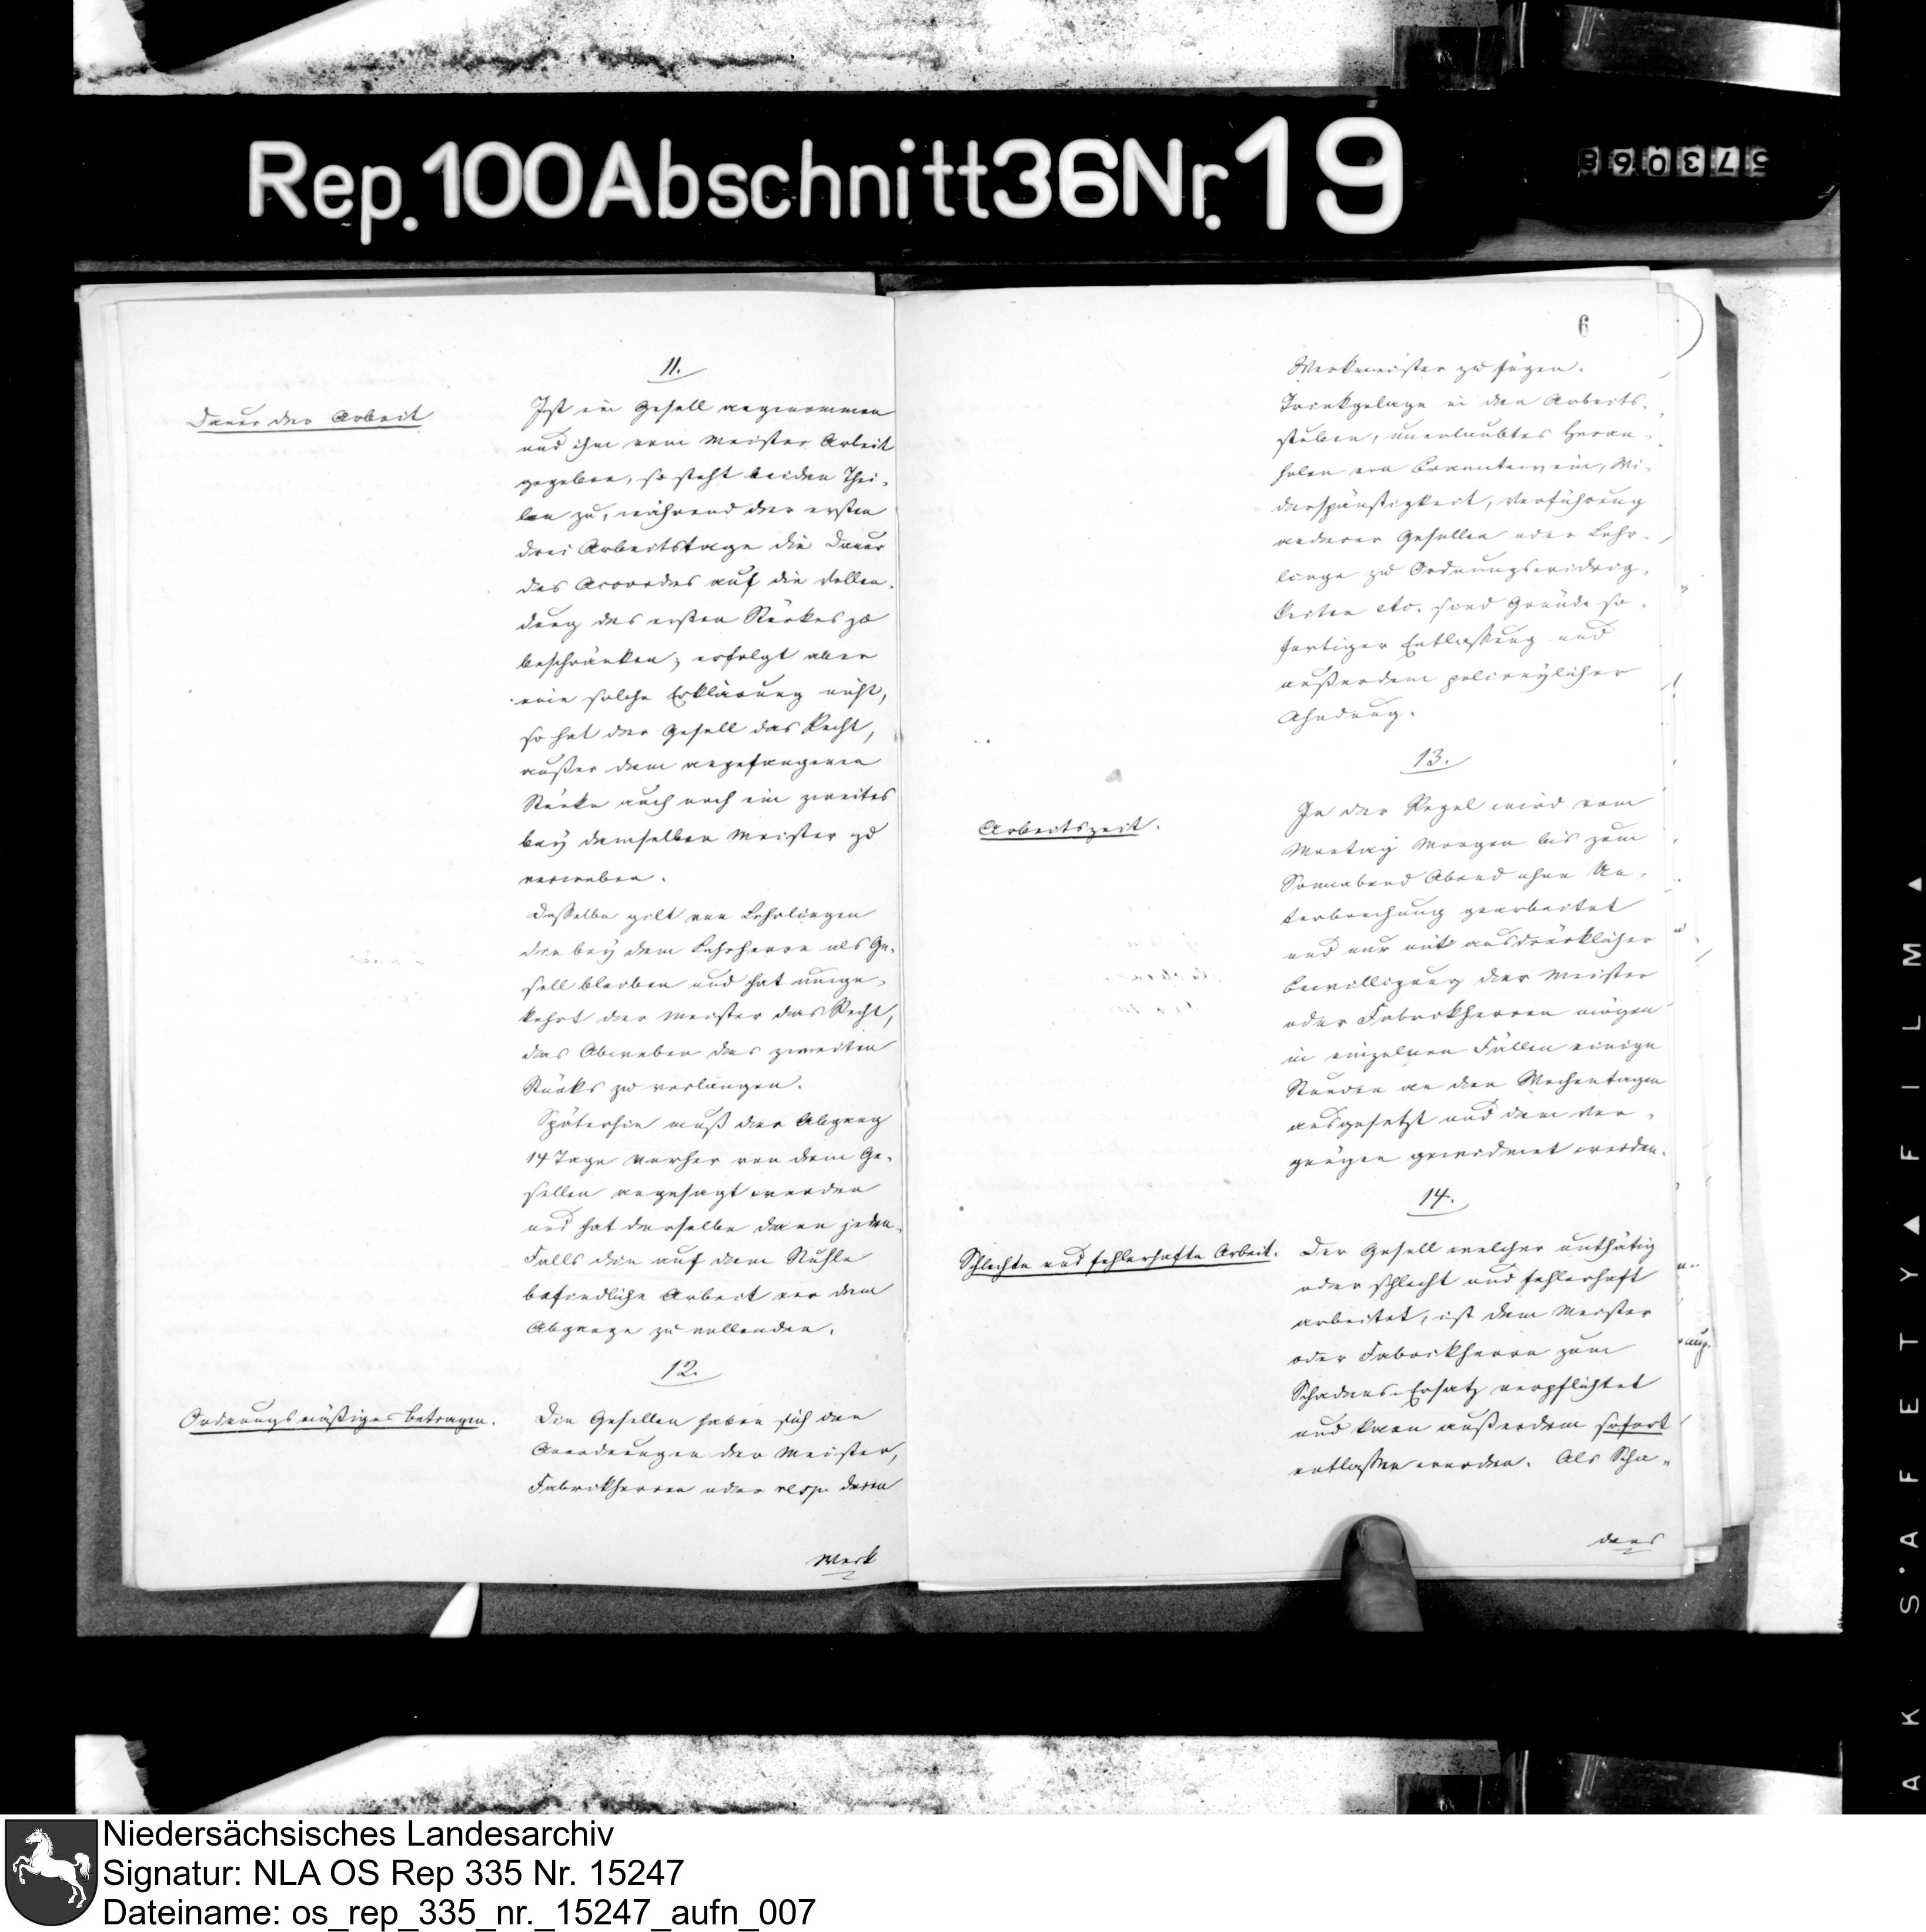 Rep. 100 Abschnitt 36 Nr. 19
573068
11.
Dauer der Arbeit
Ist ein Gesell angenommen
und ihm vom Meister Arbeit
gegeben, so steht beiden Thei-
len zu, während der ersten
drei Arbeitstage die Dauer
des Accordes auf die Vollen-
dung des ersten Stückes zu
beschränken; erfolgt aber
eine solche Erklärung nicht,
so hat der Gesell das Recht,
außer dem angefangenen
Stücke auch noch ein zweites
bey demselben Meister zu
verweben.
Dasselbe gilt von Lehrlingen
die bey dem Lehrherrn als Ge-
sell bleiben und hat umge-
kehrt der Meister das Recht,
das Abweben des zweiten
Stücks zu verlangen.
Späterhin muß der Abgang
14 Tage vorher von dem Ge-
sellen angesagt werden
und hat derselbe dann jeden-
Falls die auf dem Stuhle
befindliche Arbeit vor dem
Abgange zu vollenden.
12.
Ordnungsmäßiges Betragen.
Die Gesellen haben sich den
Anordnungen der Meister,
Fabrickherren oder resp. deren
Werk
6
Werkmeister zu fügen.
Trinkgelage in den Arbeits-
stuben, unerlaubtes Heran-
holen von Branntewein, Wi-
derspänstigkeit, Verführung
anderer Gesellen oder Lehr-
linge zu Ordnungswidrig-
keiten etc. sind Gründe so-
fortiger Entlaßung und
außerdem policeylicher
Ahndung.
13.
Arbeitszeit.
In der Regel wird vom
Montag Morgen bis zum
Sonnabend Abend ohne Un-
terbrechung gearbeitet
und nur mit ausdrücklicher
Bewilligung der Meister
oder Fabrickherren mögen
in einzelnen Fällen einige
Stunden an den Wochentagen
ausgesetzt und dem Ver-
gnügen gewidmet werden.
14.
Schlechte und fehlerhafte Arbeit.
Der Gesell welcher unthätig
oder schlecht und fehlerhaft
arbeitet, ist dem Meister
oder Fabrickherrn zum
Schadens-Ersatz verpflichtet
und kann außerdem sofort
entlaßen werden. Als Scha-
dens
A K S·A F E T Y ▲ F I L M ▲
Niedersächsisches Landesarchiv
Signatur: NLA OS Rep 335 Nr. 15247
Dateiname: os_rep_335_nr._15247_aufn_007